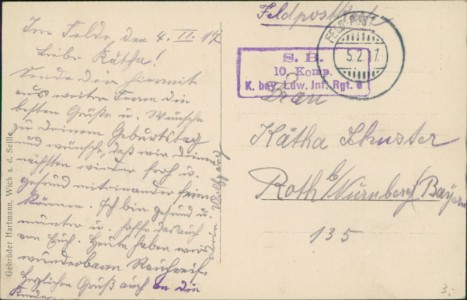 Im Felde, den 4. II. 17
Liebe Kätha!
Sende dir hiermit
aus weiter Ferne die
besten Grüße u. Wünsche
zu deinem Geburtstag
und wünsche, daß wir deinen
nächsten wieder froh u.
gesund miteinander feiern
können. Ich bin gesund u.
munter u. hoffe das auch
von Euch. Heute haben wir
wunderbaren Rauhreif.
Herzlichen Gruß auch an die
Kinder
Gebrüder Hartmann, Wich a. d. Seille
Feldpostkarte
5.2.
S. B.
10. Komp.
K. bay. Ldw. Inf. Rgt. 8
Frau
Kätha Schuster
Roth b/Nürnberg Bayern
135
3.-